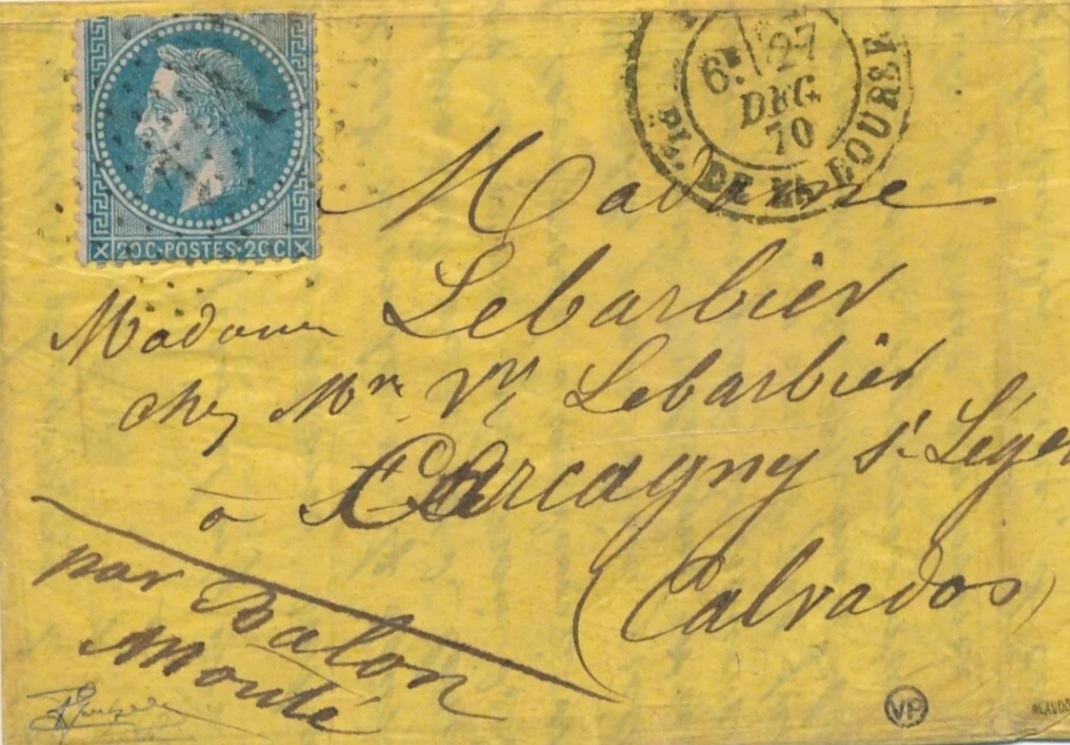 20C·POSTES·20C
6E 27
DEC.
70
PL. DE LA BOURSE
Madame
Lebarbier
Madame
chez Mr Vr Lebarbier
à Carcagny St Léger
(Calvados)
par Balon
Monté
VP